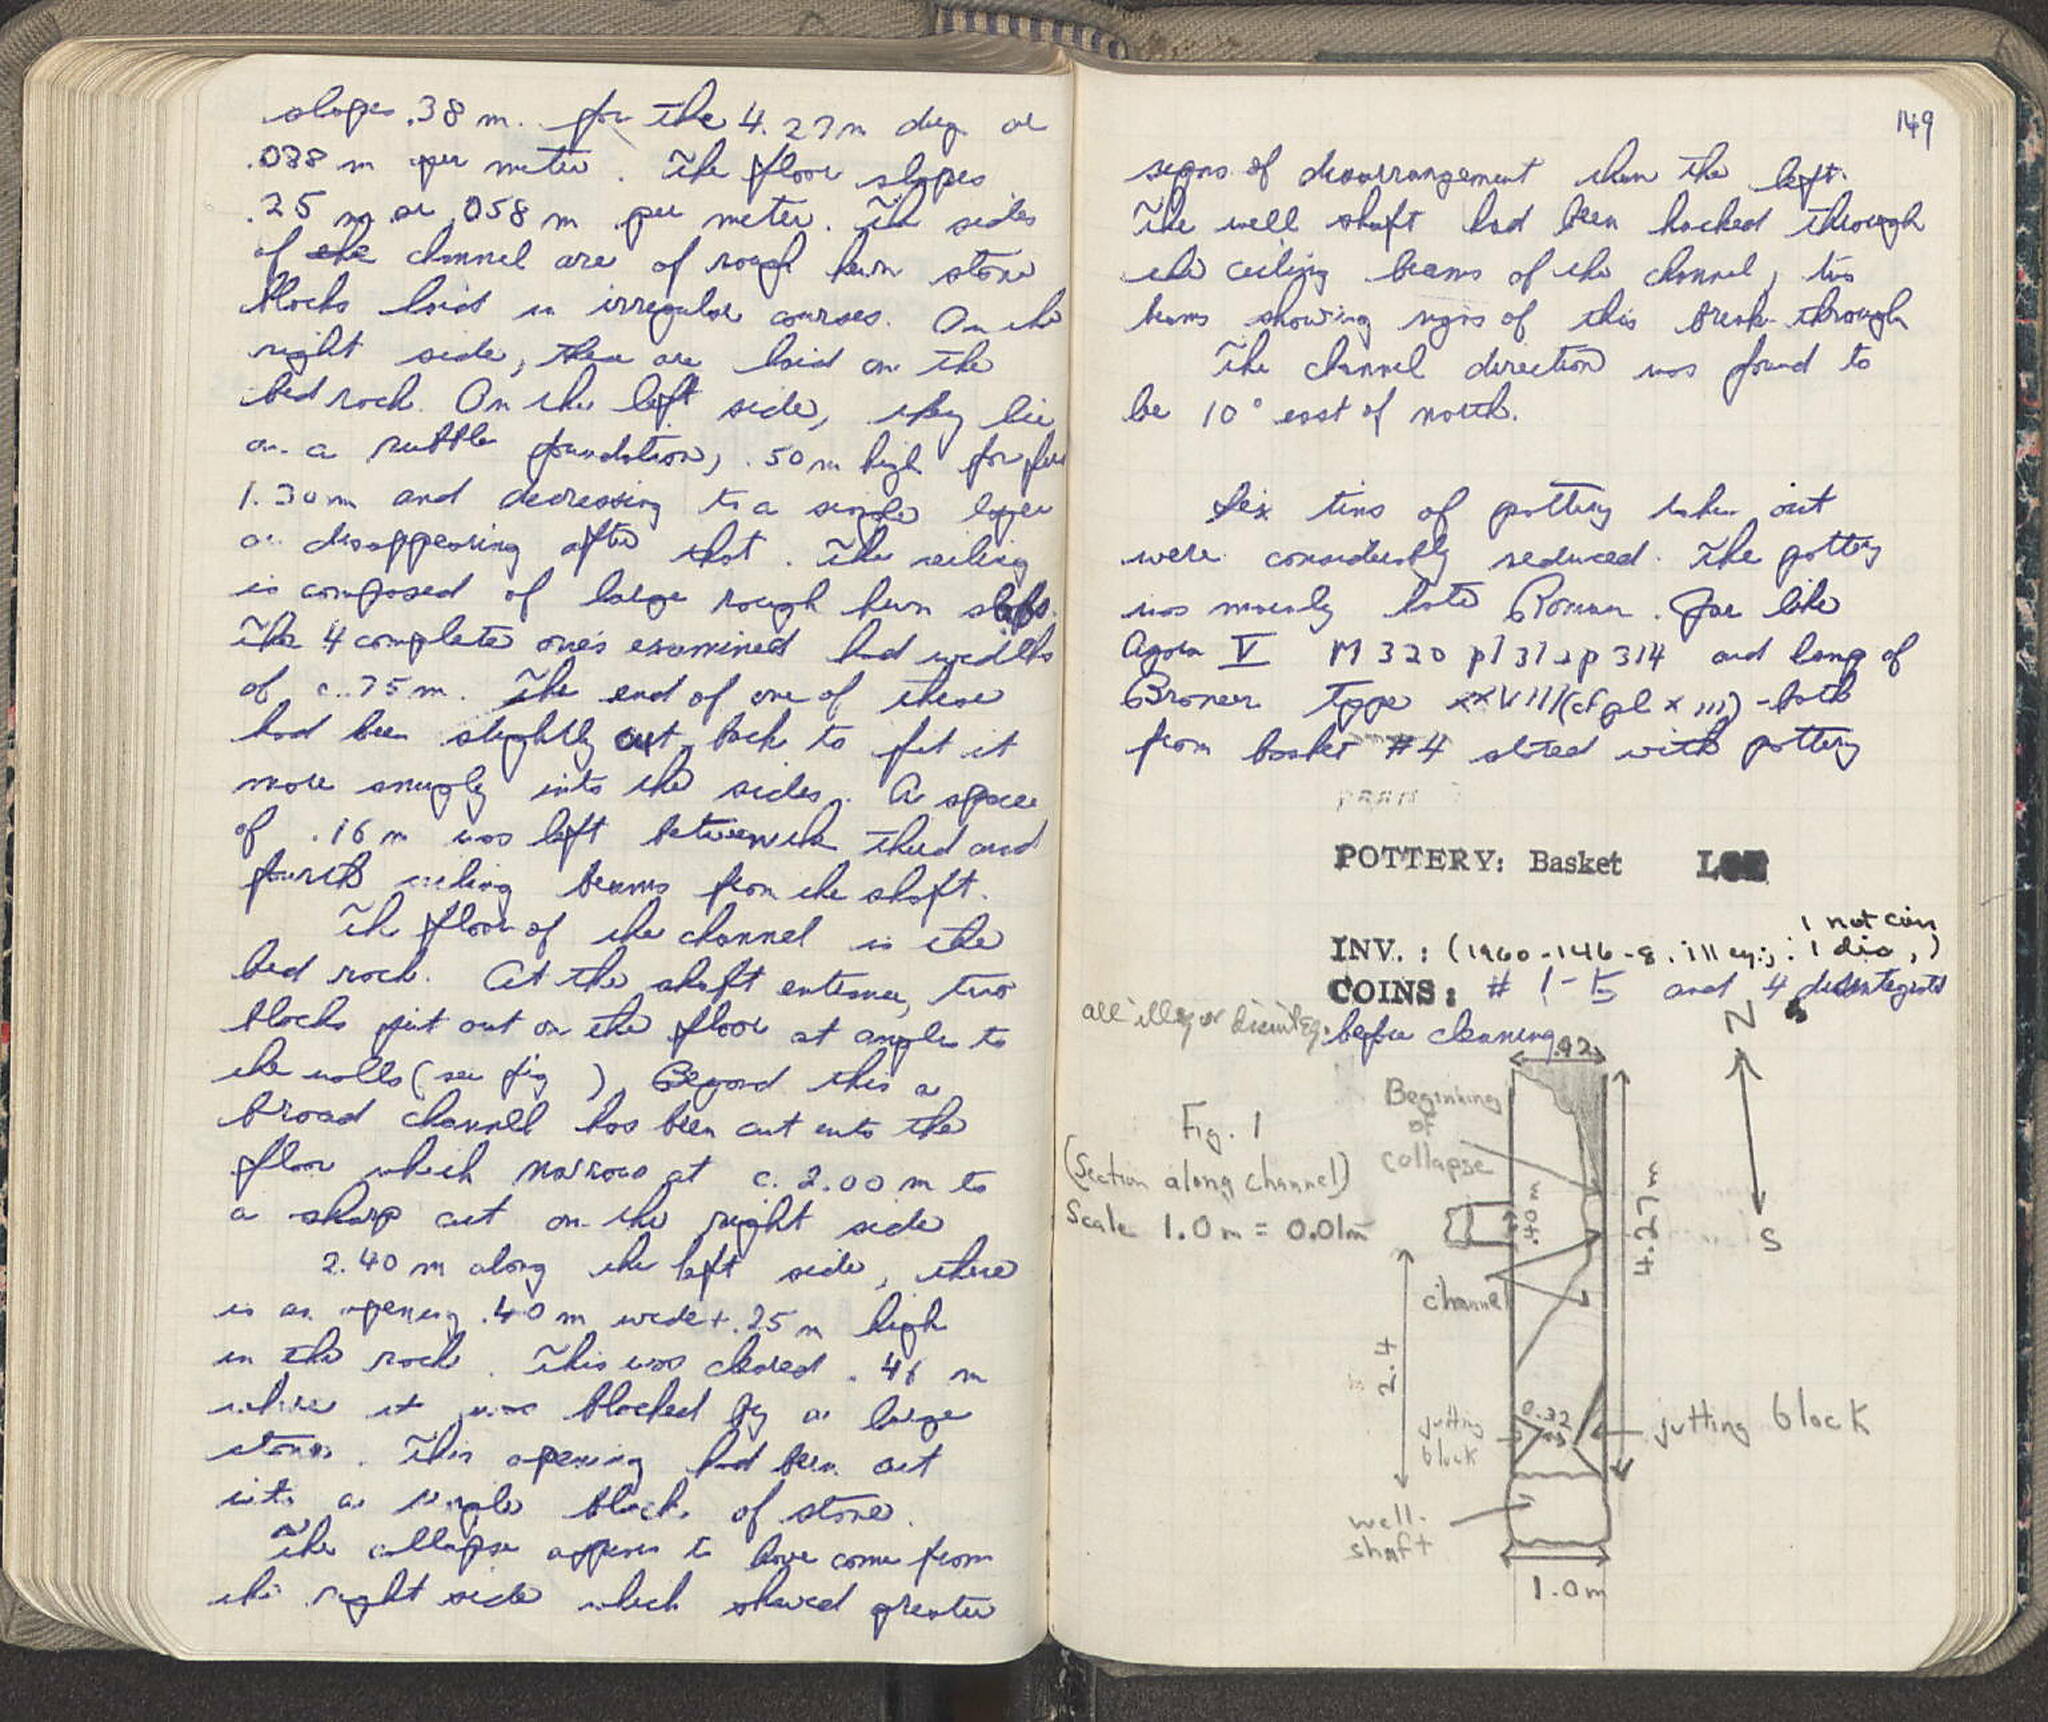 slopes .38 m. for the 4.27m dug or
.088 m per meter. The floor slopes
.25 m or .058 m per meter. The sides
of the channel are of rough hewn stone
blocks laid in irregular courses. On the
right side, these are laid on the
bed rock. On the left side, they lie
on a rubble foundation, .50 m high for first
1.30 m and decreasing to a single layer
or disappearing after that. The ceiling
is composed of large rough hewn slabs.
The 4 complete ones examined had widths
of c. .75 m. The end of one of these
had been slightly cut back to fit it
more snugly into the sides. A space
of .16 m was left between the third and
fourth ceiling beams from the shaft.
The floor of the channel is the
bed rock. At the shaft entrance, two
blocks jut out on the floor at angles to
the walls (see fig ). Beyond this a
broad channel has been cut into the
floor which narrows at c. 2.00 m to
a sharp cut on the right side
2.40 m along the left side, there
is an opening .40 m wide + .25 m high
in the rock. This was cleared .46 m
where it was blocked by a large
stone. This opening had been cut
into a single block of stone.
The collapse appears to have come from
the right side which showed greater
149
signs of disarrangement than the left.
The well shaft had been hacked through
the ceiling beams of the channel, two
beams showing signs of this break through
The channel direction was found to
be 10° east of north.
Six tins of pottery taken out
were considerably reduced. The pottery
was mainly late Roman. Jar like
Agora V M 320 pl 31 p 314 and lamp of
Broneer Type XXVIII (cf pl XIII) - both
from basket #4 stored with pottery
POTTERY: Basket Lot
1 not coin
INV.: (1960-146-8. illeg.; 1 dis,)
COINS: # 1-5 and 4 disintegrated
all illeg or disinteg. before cleaning
N
.92
Beginning
of
collapse
Fig. 1
(Section along channel)
Scale 1.0 m = 0.01m
.40 m
4.27 m
S
channel
2.4
m
0.32
jutting
block
jutting block
well-
shaft
1.0 m